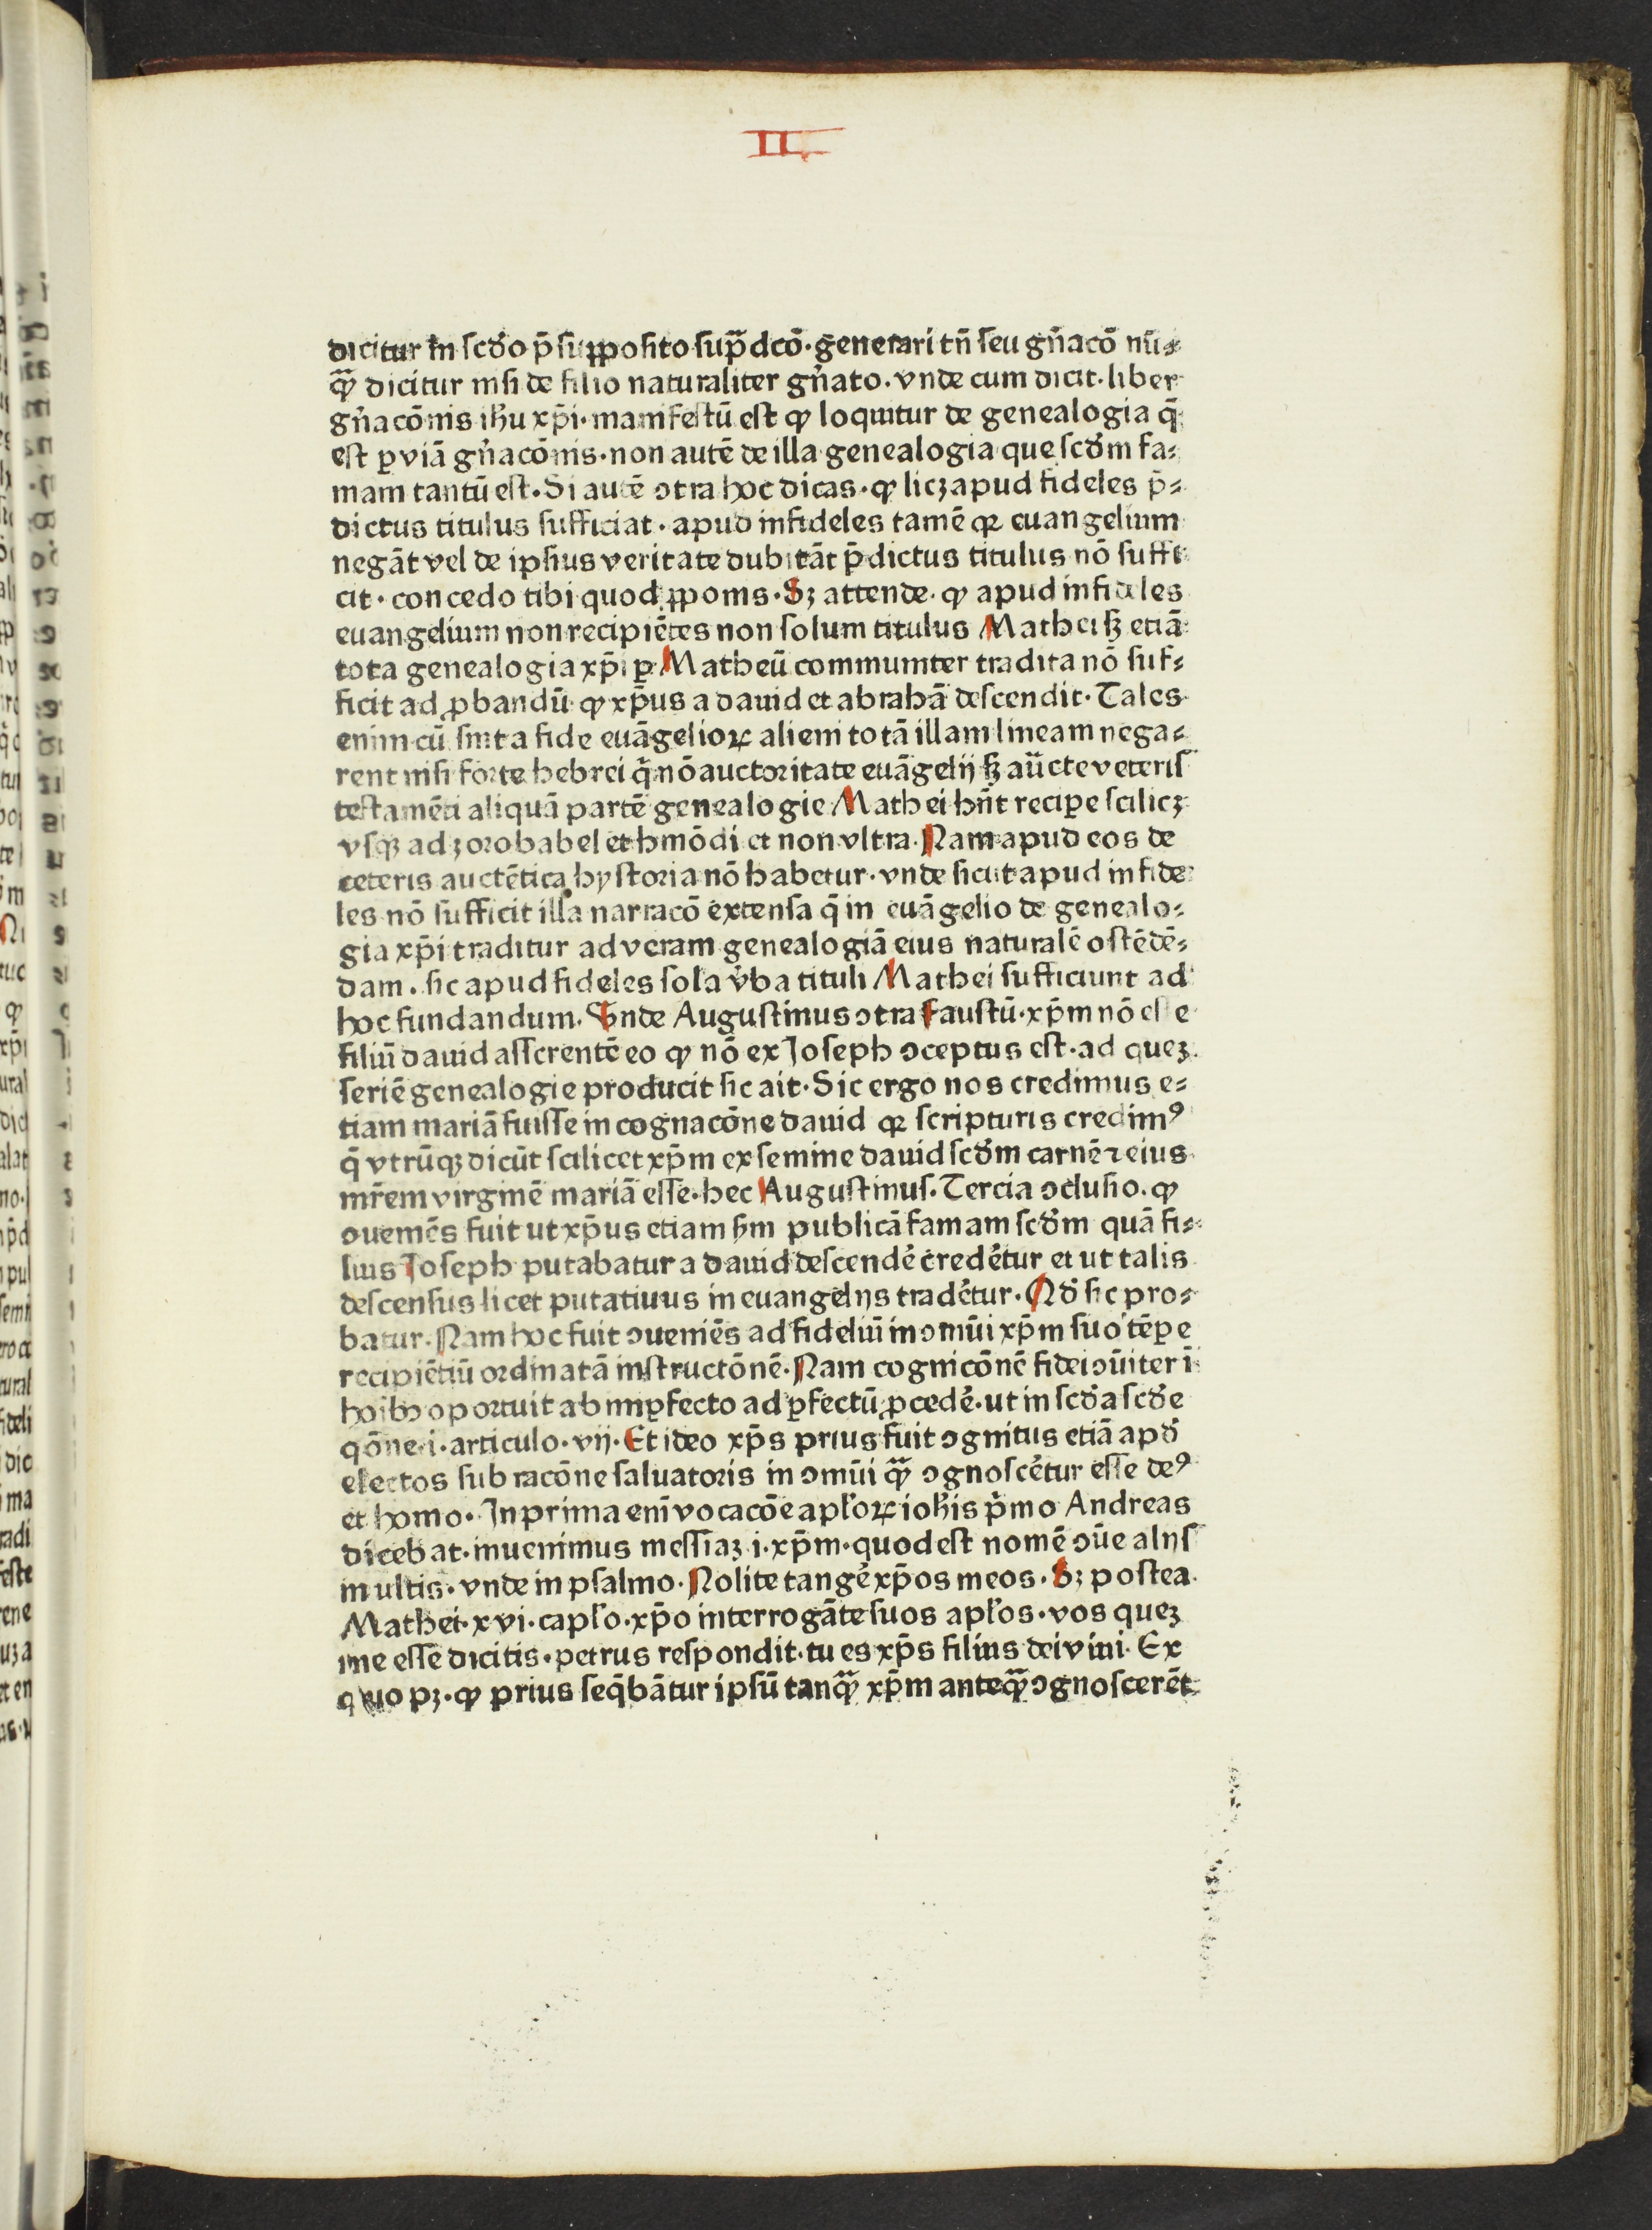 II
dicitur in scd̓o p̄supposito sup̄dcō. generari tn̄ seu gn̄acō nū⸗
qᷓ dicitur nisi de filio naturaliter gn̓ato. vnde cum dicit. liber
gn̓acōnis ih̓u xp̄i. manifestū est ꝙ loquitur de genealogia q̄
est ꝑ viā gn̓acōnis. non autē de illa genealogia que scd̓m fa⸗
mam tantū est. Si autē ↄtra hoc dicas. ꝙ licꝫ apud fideles p̄⸗
dictus titulus sufficiat. apud infideles tamē qꝛ euangelium
negāt vel de ipsius veritate dubitāt p̄dictus titulus nō suffi
cit. concedo tibi quod ꝓponis. Sꝫ attende. ꝙ apud infideles
euangelium non recipiētes non solum titulus Mathei sꝫ etiā
tota genealogia xp̄i ꝑ Matheū communiter tradita nō suf⸗
ficit ad ꝓbandū ꝙ xp̄us a dauid et abrahā descendit. Tales
enim cū sint a fide euāgelioꝝ alieni totā illam lineam nega⸗
rent nisi forte hebrei q̄ nō auctoritate euāgelij sꝫ aūcte veteris
testamēti aliquā partē genealogie Mathei hn̄t recipe scilicꝫ
vsqꝫ ad zorobabel et hmōdi et non vltra. Nam apud eos de
ceteris auctētica hystoria nō habetur. vnde sicut apud infide
les nō sufficit illa narracō extensa q̄ in euāgelio de genealo⸗
gia xp̄i traditur ad veram genealogiā eius naturalē ostēdē⸗
dam. sic apud fideles sola v̓ba tituli Mathei sufficiunt ad
hoc fundandum. Vnde Augustinus ↄtra faustū. xp̄m nō esse
filiū dauid asserentē eo ꝙ nō ex Joseph ↄceptus est. ad queꝫ
seriē genealogie producit sic ait. Sic ergo nos credimus e⸗
tiam mariā fuisse in cognacōne dauid qꝛ scripturis credimꝰ
q̄ vtrūqꝫ dicūt scilicet xp̄m ex semine dauid scd̓m carnē ⁊ eius
mr̄em virginē mariā esse. hec Augustinus. Tercia ↄclusio. ꝙ
ↄueniēs fuit ut xp̄us etiam sm̄ publicā famam scd̓m quā fi⸗
lius Joseph putabatur a dauid descendē credētur et ut talis
descensus licet putatiuus in euangelijs tradētur. Qd̓ sic pro⸗
batur. Nam hoc fuit ↄueniēs ad fideliū in ↄmūi xp̄m suo tēꝑe
recipiētiū ordinatā instructōnē. Nam cognicōnē fidei ↄūiter ī
hoībꝫ oportuit ab imꝑfecto ad ꝑfectū ꝓcedē. ut in scd̓a scd̓e
qōne. i. articulo. vij. Et ideo xp̄s prius fuit ↄgnitus etiā apd̓
electos sub racōne saluatoris in ↄmūi qᷓ ↄgnoscētur esse deꝰ
et homo. In prima enī vocacōe apl̓oꝝ ioh̓is p̓mo Andreas
dicebat. inuenimus messiaꝫ i. xp̄m. quod est nomē ↄūe alijs
multis. vnde in psalmo. Nolite tangē xp̄os meos. Sꝫ postea
Mathei. xvi. capl̓o. xp̄o interrogāte suos apl̓os. vos queꝫ
me esse dicitis. petrus respondit. tu es xp̄s filius dei viui. Ex
quo pꝫ. ꝙ prius seq̄bātur ipsū tanqᷓ xp̄m anteqᷓ ↄgnoscerēt